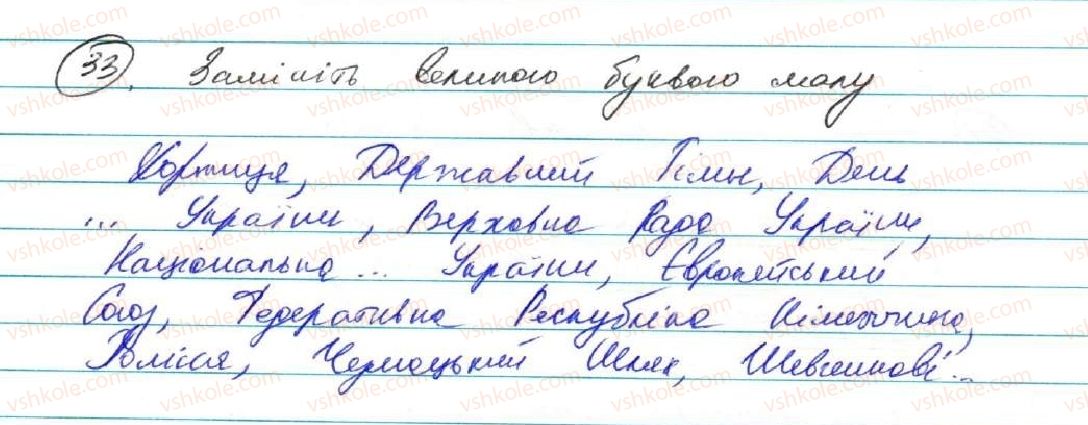 33. Замініть великою буквою малу
Хортиця, Державний Гімн, День
... України, Верховна Рада України,
Національна ... України, Європейський
Союз, Федеративна Республіка Німеччина,
Полісся, Чумацький Шлях, Шевченкові ...
vshkole.com